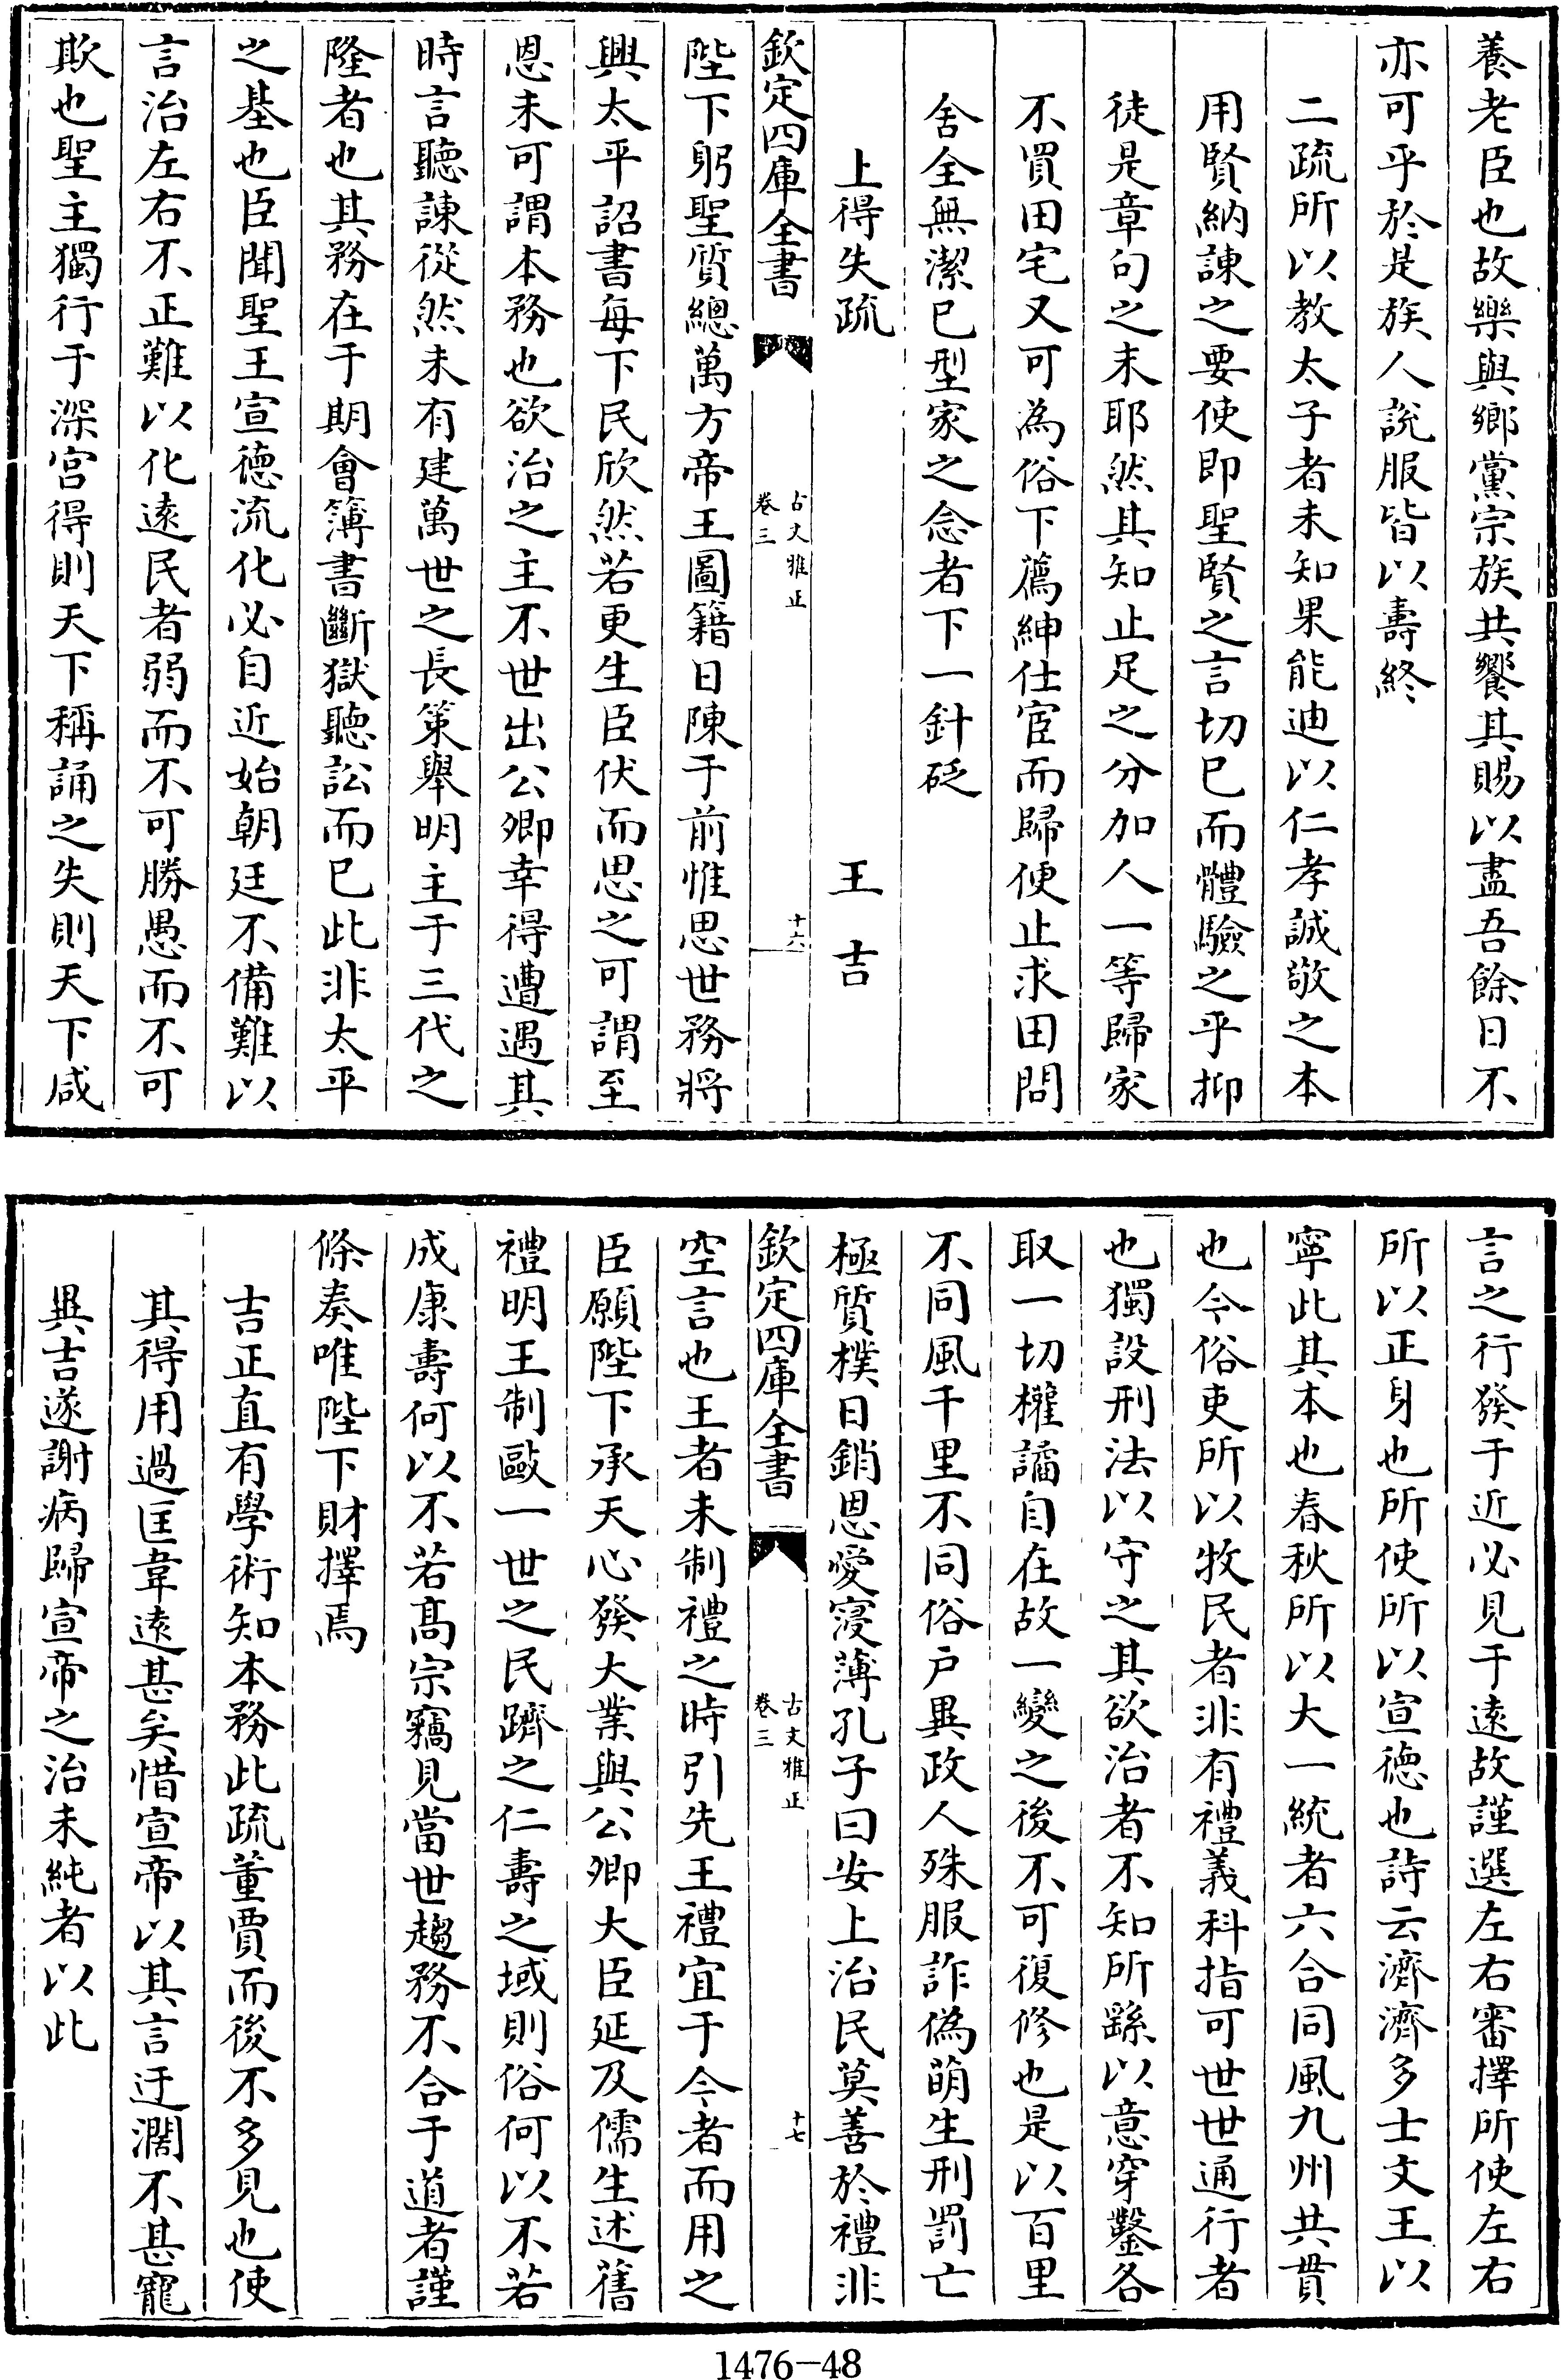 養老臣也故樂與鄉黨宗族共饗其賜以盡吾餘日不
亦可乎於是族人說服皆以壽終
二疏所以教太子者未知果能迪以仁孝誠敬之本
用賢納諫之要使即聖賢之言切已而體驗之乎抑
徒是章句之末耶然其知止足之分加人一等歸家
不買田宅又可為俗下薦紳仕宦而歸便止求田問
舍全無潔已型家之念者下一針砭
上得失疏　王吉
欽定四庫全書　古文雅正　卷三　十六
陛下躬聖質總萬方帝王圖籍日陳于前惟思世務將
興太平詔書每下民欣然若更生臣伏而思之可謂至
恩未可謂本務也欲治之主不世出公卿幸得遭遇其
時言聽諫從然未有建萬世之長策舉明主于三代之
隆者也其務在于期會簿書斷獄聽訟而已此非太平
之基也臣聞聖王宣德流化必自近始朝廷不備難以
言治左右不正難以化遠民者弱而不可勝愚而不可
欺也聖主獨行于深宮得則天下稱誦之失則天下咸
言之行發于近必見于遠故謹選左右審擇所使左右
所以正身也所使所以宣德也詩云濟濟多士文王以
寧此其本也春秋所以大一統者六合同風九州共貫
也今俗吏所以牧民者非有禮義科指可世世通行者
也獨設刑法以守之其欲治者不知所繇以意穿鑿各
取一切權譎自在故一變之後不可復修也是以百里
不同風千里不同俗戶異政人殊服詐偽萌生刑罰亡
極質樸日銷恩愛寖薄孔子曰安上治民莫善於禮非
欽定四庫全書　古文雅正　卷三　十七
空言也王者未制禮之時引先王禮宜于今者而用之
臣願陛下承天心發大業與公卿大臣延及儒生述舊
禮明王制歐一世之民躋之仁壽之域則俗何以不若
成康壽何以不若髙宗竊見當世趨務不合于道者謹
條奏唯陛下財擇焉
吉正直有學術知本務此疏董賈而後不多見也使
其得用過匡韋遠甚矣惜宣帝以其言迂濶不甚寵
異吉遂謝病歸宣帝之治未純者以此
1476-48